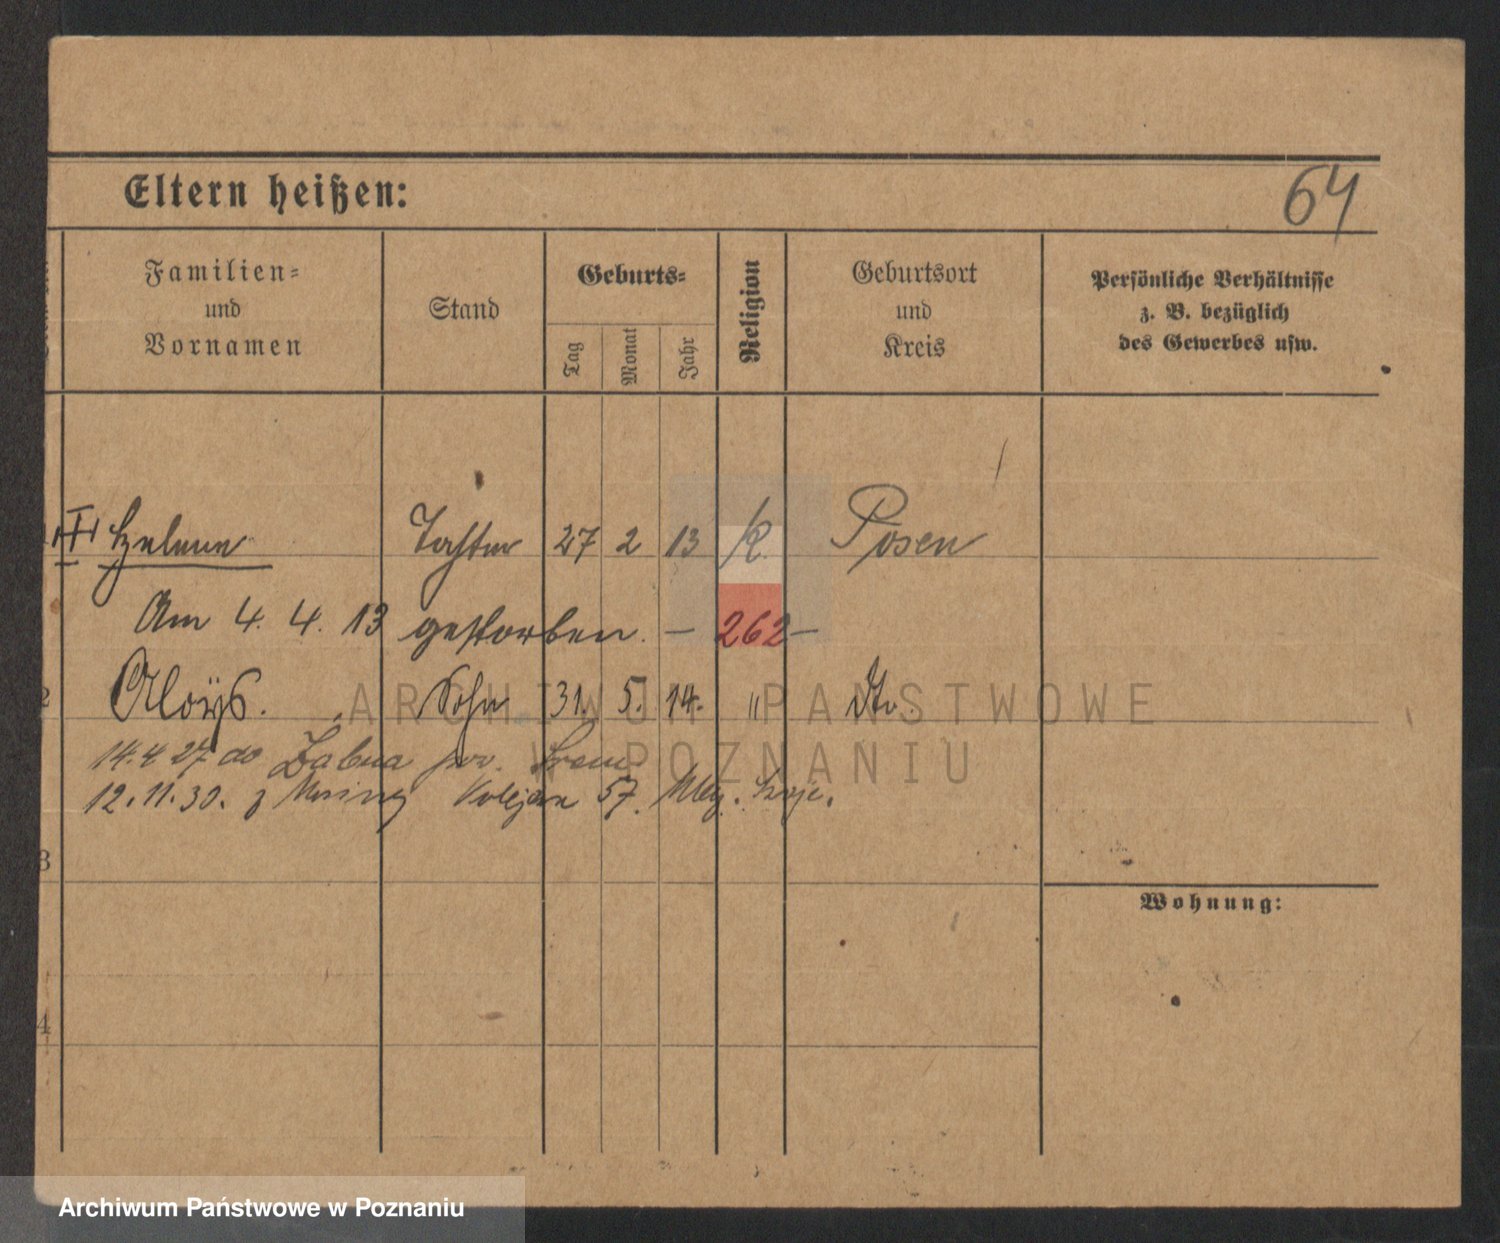 Eltern heißen:
64
Familien-
und
Vornamen
Stand
Geburts-
Tag
Monat
Jahr
Religion
Geburtsort
und
Kreis
Persönliche Verhältnisse
z. B. bezüglich
des Gewerbes usw.
Helene Tochter 27 2 13 K. Posen
Am 4. 4. 13 gestorben. — 262 —
2 Aloÿs. Sohn 31. 5. 14. " dto.
14.4 27 do Żabna pow. Śrem
12.11.30. z 57.
3
Wohnung:
4
ARCHIWUM PAŃSTWOWE
W POZNANIU
Archiwum Państwowe w Poznaniu